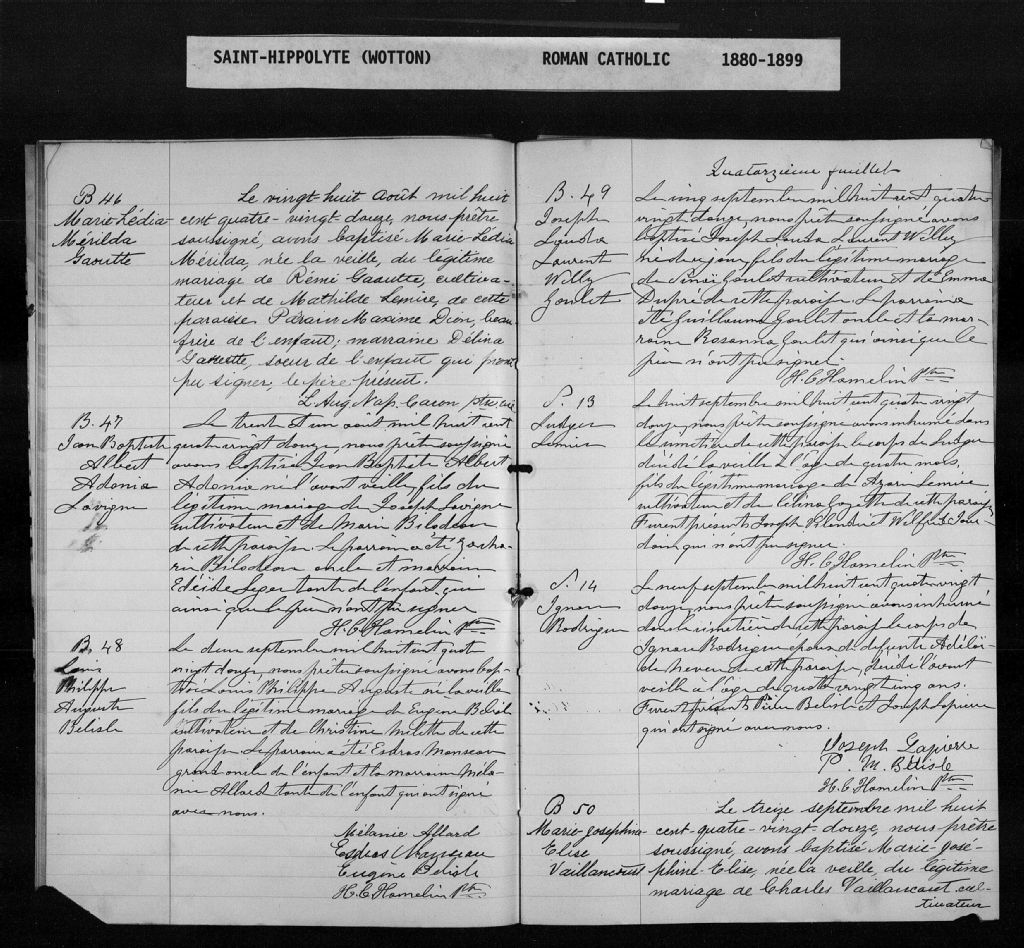 SAINT-HIPPOLYTE (WOTTON) ROMAN CATHOLIC 1880-1899
B 46
Marie Lédia
Mérilda
Gaoutte
Le vingt-huit août mil huit
cent quatre-vingt douze, nous prêtre
soussigné, avons baptisé Marie Lédia
Mérilda, née la veille, du légitime
mariage de Rémi Gaoutte, cultiva-
teur et de Mathilde Lemire, de cette
paroisse. Parain Maxime Dion, beau
frère de l'enfant; marraine Délina
Gaouette, soeur de l'enfant qui
pu signer, le père présent.
L. Aug. Nap. Caron ptre, curé
B. 47
Jean Baptiste
Albert
Adonia
Lavigne
Le trente et un août mil huit cent
quatre vingt douze, nous prêtre soussigné
avons baptisé Jean Baptiste Albert
Adonia né l'avant veille, fils du
légitime mariage de Joseph Lavigne
cultivateur et de Marie Bilodeau
de cette paroisse. Le parrain a été Zacha-
rie Bilodeau oncle et marraine
Leger tante de l'enfant, qui
ainsi que le père n'ont pu signer
H. C Hamelin Ptre
B. 48
Louis
Philippe
Auguste
Belisle
Le deux septembre mil huit cent quatre
vingt douze, nous prêtre soussigné avons bap-
tisé Louis Philippe Auguste né la veille
fils du légitime mariage de Eugène Belisle
cultivateur et de Christine Milette de cette
paroisse. Le parrain a été Esdras Manseau
grand oncle de l'enfant et la marraine Méla-
nie Allard tante de l'enfant qui ont signé
avec nous.
Mélanie Allard
Esdras Manseau
Eugène Belisle
H. C Hamelin Ptre
Quatorzième feuillet
B. 49
Joseph
Louda
Laurent
Willy
Goulet
Le cinq septembre mil huit cent quatre
vingt douze, nous prêtre soussigné avons
baptisé Joseph Louda Laurent Willy
né de ce jour, fils du légitime mariage
de Sinaï Goulet cultivateur et de Emma
Dupré de cette paroisse. Le parrain a
été Guillaume Goulet oncle et la mar-
raine Rosanna Goulet qui ainsi que le
père n'ont pu signer.
H. C Hamelin Ptre
S. 13
Ludger
Lemire
Le huit septembre mil huit cent quatre vingt
douze, nous prêtre soussigné avons inhumé dans
le cimetière de cette paroisse le corps de Ludger
décédé la veille à l'âge de quatre mois,
fils du légitime mariage de Azarie Lemire
cultivateur et de Célina de cette paroisse
Furent présents Joseph et Wilfrid Jour-
dain qui n'ont pu signer.
H. C Hamelin Ptre
S. 14
Ignace
Rodrigue
Le neuf septembre mil huit cent quatre vingt
douze, nous prêtre soussigné avons inhumé
dans le cimetière de cette paroisse le corps de
Ignace Rodrigue époux de défunte Adélaï-
de Neveu de cette paroisse, décédé l'avant
veille à l'âge de quatre vingt cinq ans.
Furent présents Pierre Belisle et Joseph Lapierre
qui ont signé avec nous.
Joseph Lapierre
P. M. Belisle
H. C Hamelin Ptre
B 50
Marie-Joséphine
Elise
Vaillancourt
Le treize septembre mil huit
cent-quatre-vingt-douze, nous prêtre
soussigné, avons baptisé Marie-José-
phine-Elise, née la veille, du légitime
mariage de Charles Vaillancourt cul-
tivateur